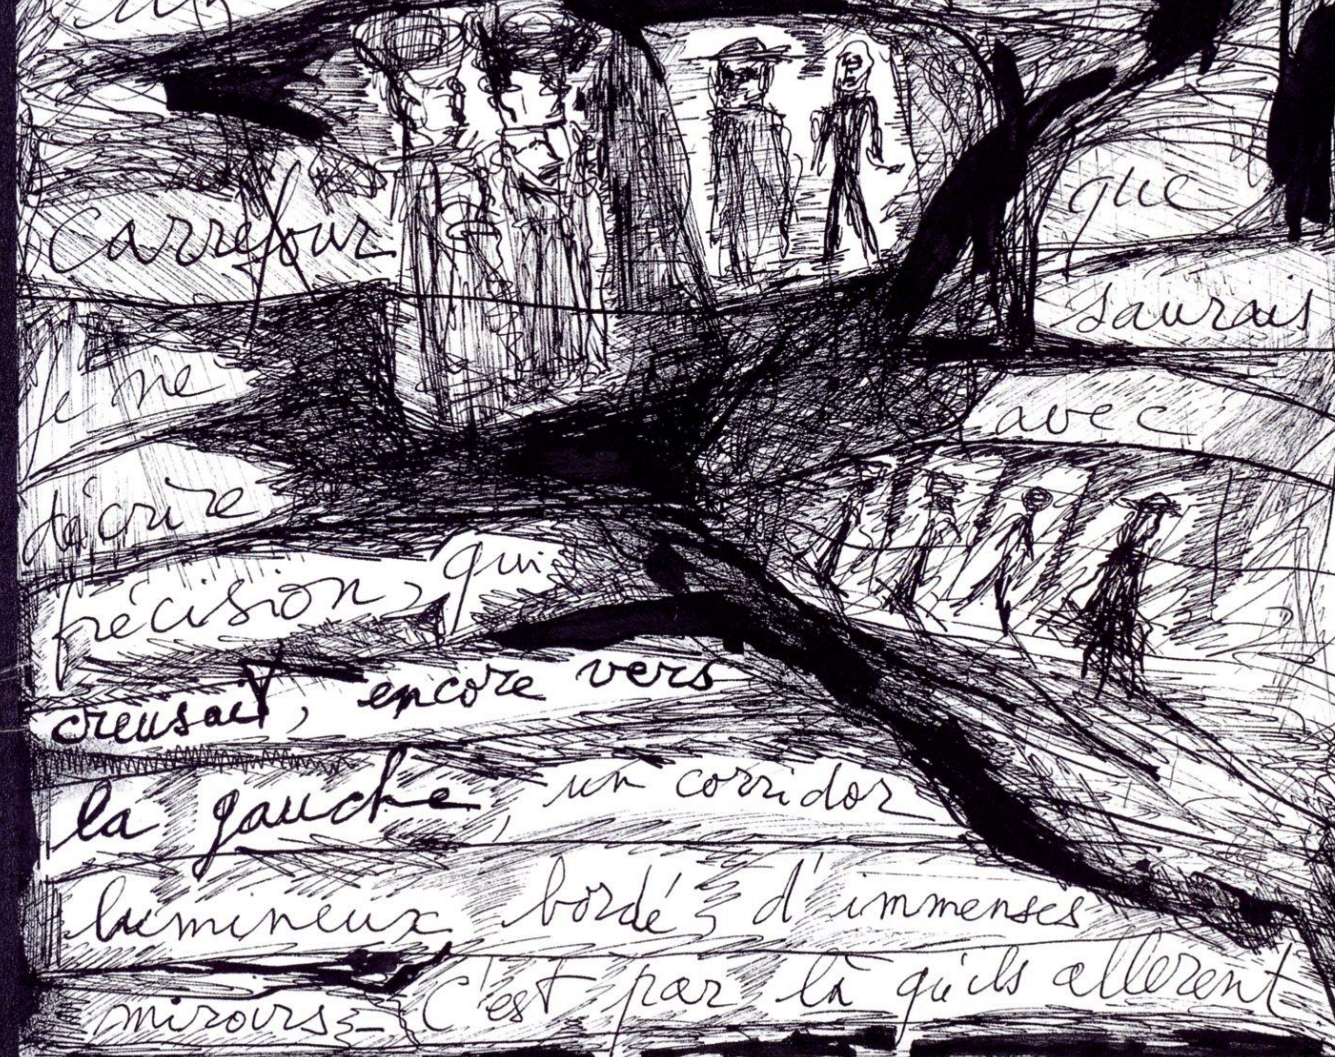 un
Carrefour que
je ne saurais
décrire avec
précision, qui
creusait, encore vers
la gauche, un corridor
lumineux bordé d'immenses
miroirs - C'est par là qu'ils allèrent